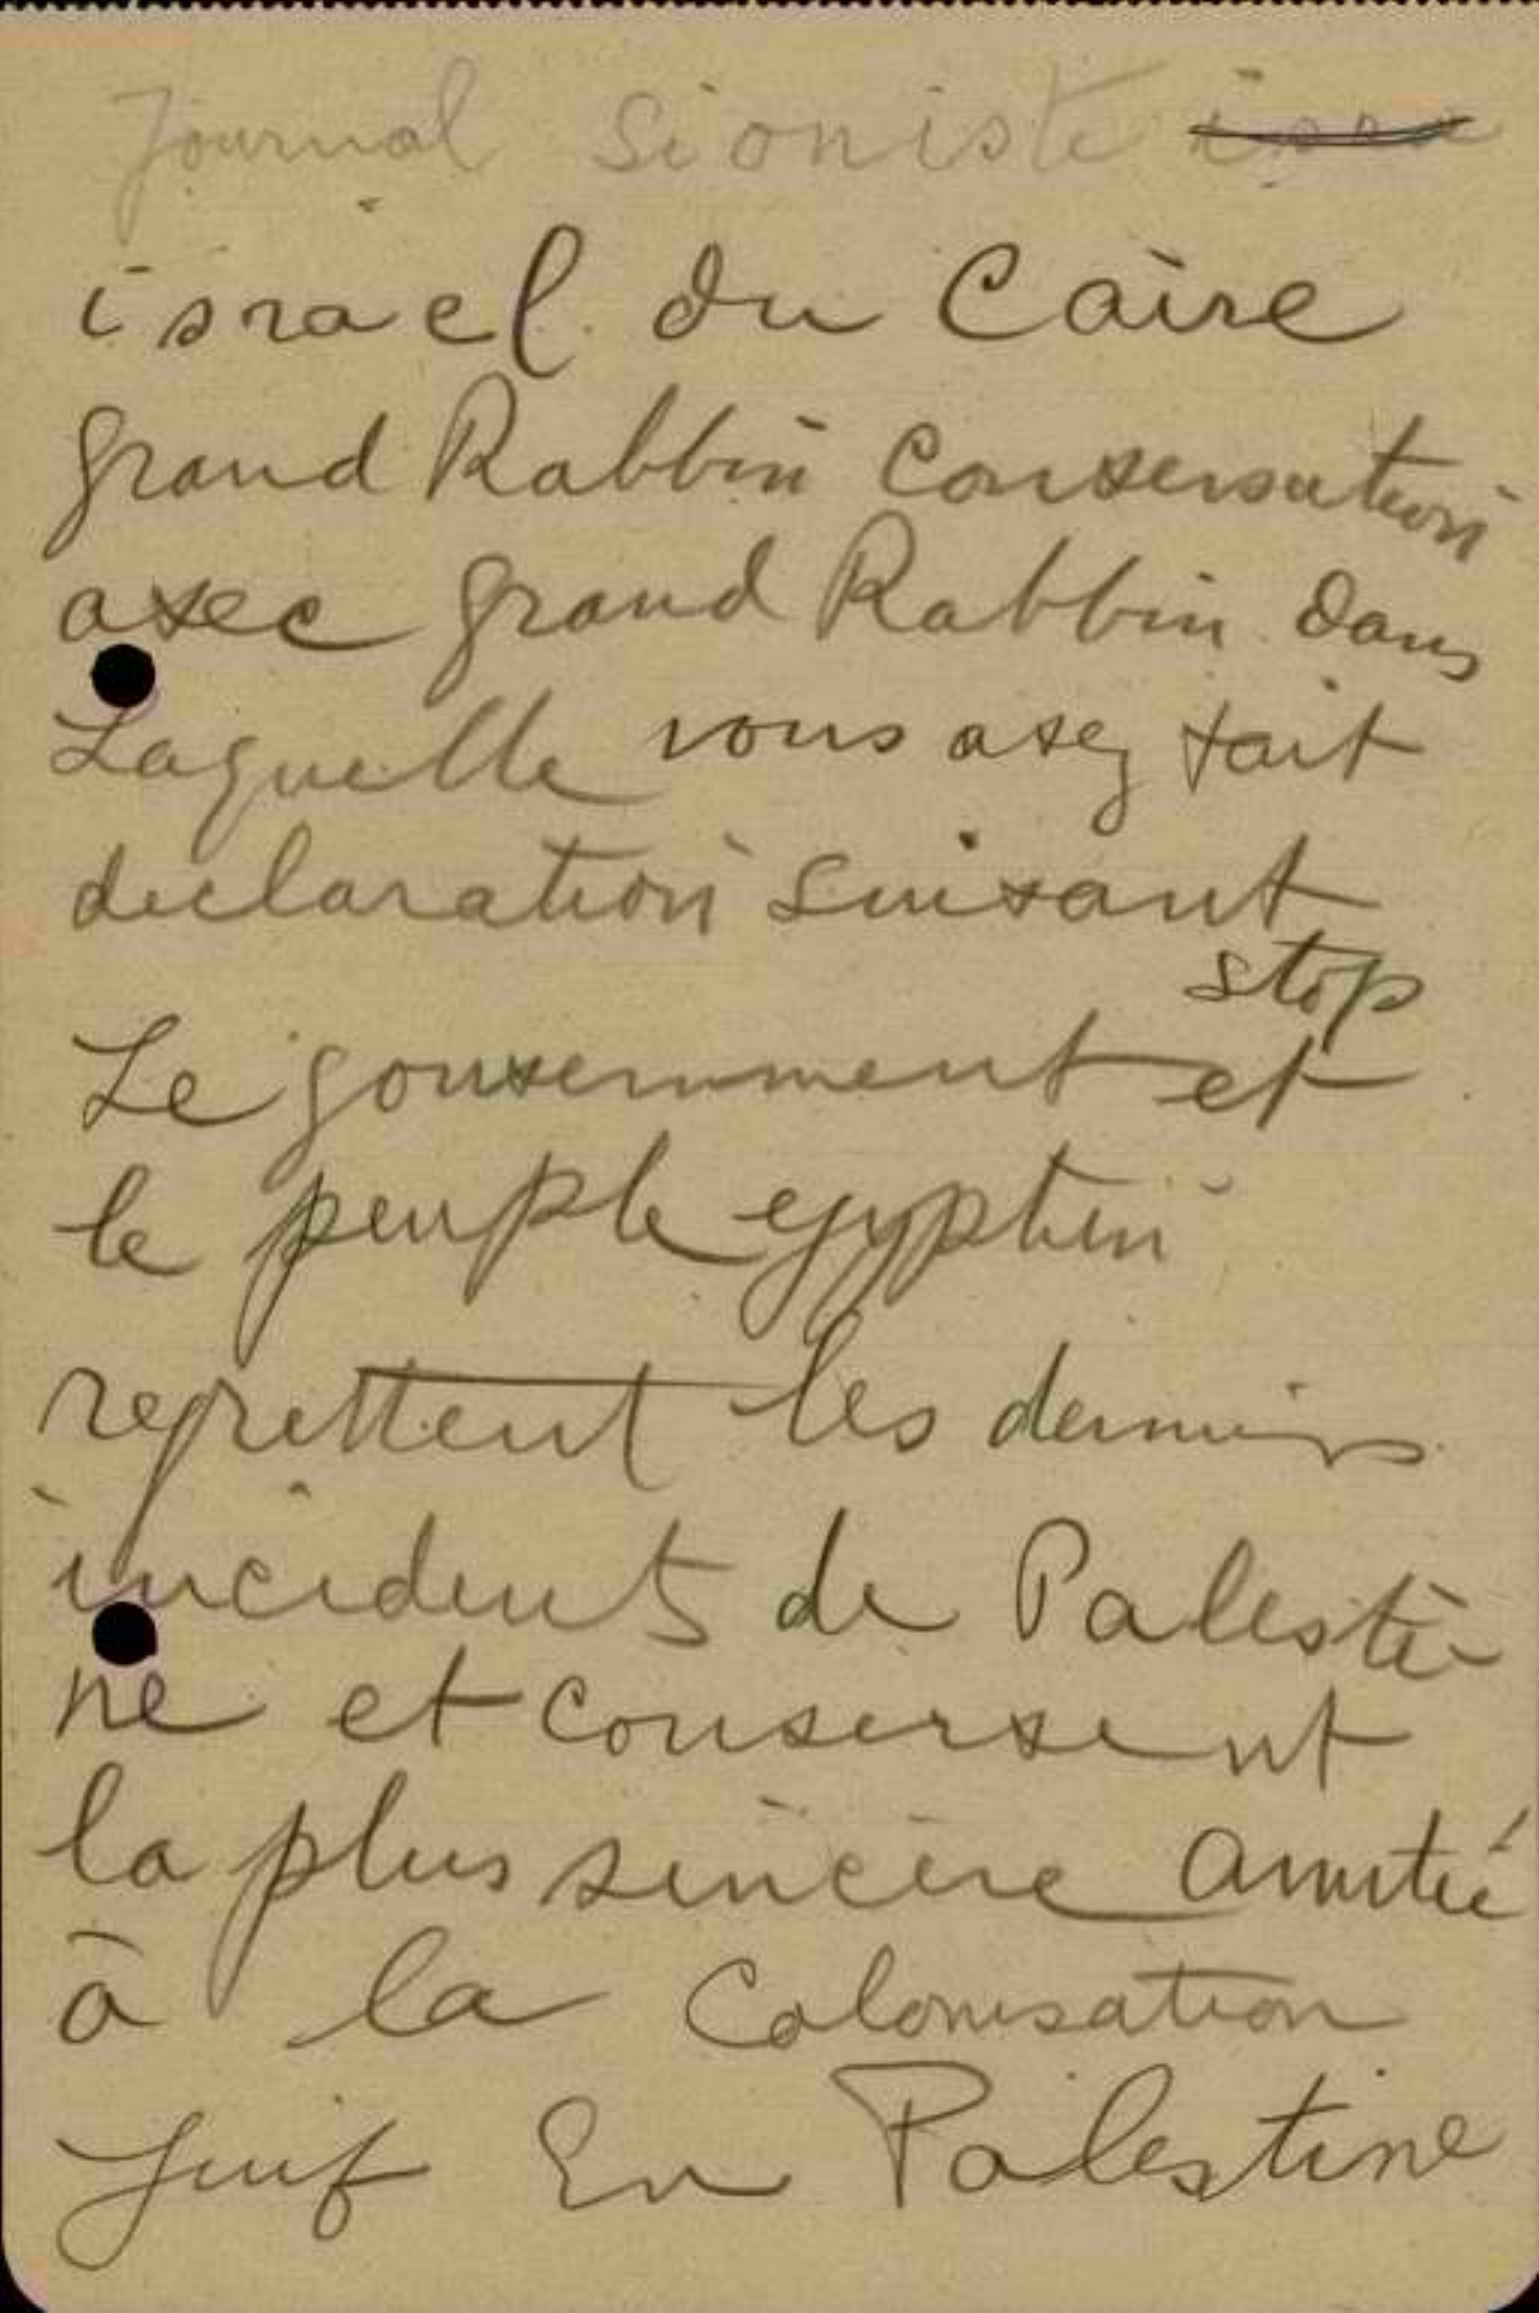 Journal Sioniste isra
israel du Caire
grand Rabbin Conversation
avec grand Rabbin dans
Laquelle vous avez fait
declaration suivant
stop
Le gouvernment et
le peuple egyptien
regrettent les derniers
incidents de Palesti-
ne et conservent
la plus sincère amitié
à la Colonisation
Juif En Palestine